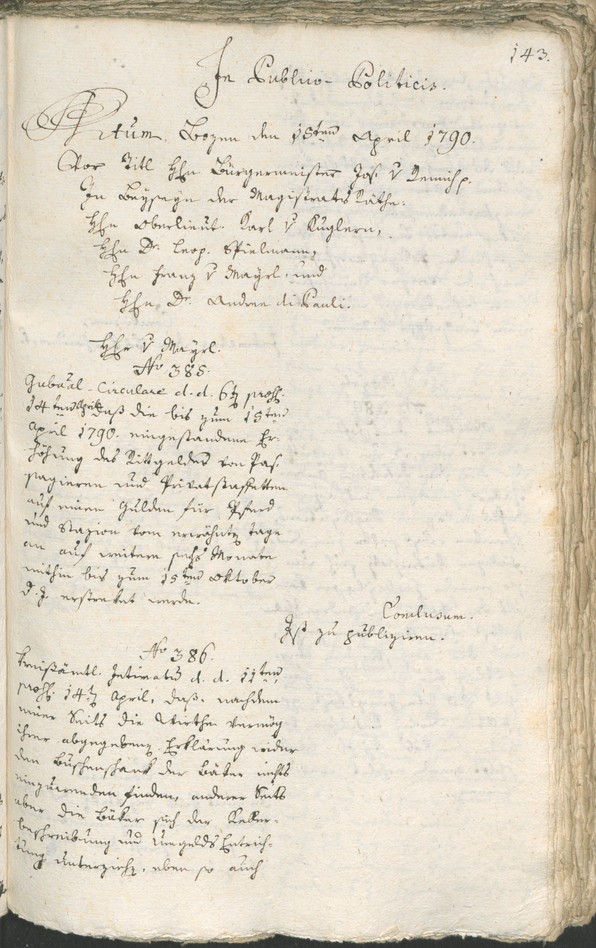 143.
In Publico-Politicis.
Actum Bozen den 15ten April 1790.
Vor Titl Hhn Bürgermeister Jos. v Remich.
In Beyseyn der Magistrats Räthe.
Hhn Oberlieut. Karl v Kuglern,
Hhn Dr. Leop. Spielmann,
Hhn Franz v Mayrl, und
Hhn Dr. Andree di Pauli.
Hhr v Mayrl.
No 385.
Gubãal-Circulare d. d. 6t, præs.
14ten April, daß die bis zum 15ten
April 1790. eingestandene Er-
höhung des Rittgeldes von Pas-
sagieren und Privatstaffetten
auf einen Gulden für Pferd
und Stazion vom erwähnt Tage
an auf weitere sechs Monate
mithin bis zum 15ten Oktober
d. J. erstrekt werde.
Conclusum.
Ist zu publiziren.
No 386.
Kreisämtl. Intimatum d. d. 11ten,
præs. 14t April, daß, nachdem
einer Seits die Wirthe vermög
ihrer abgegebenen Erklärung wider
den Buschenschank der Bäker nichts
einzuwenden finden, anderer Seits
aber die Bäker sich der Keller-
beschreibung und Umgelds Entrich-
tung unterziehen, eben so auch